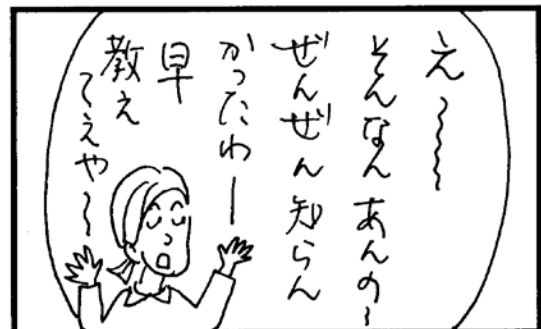 え〜〜〜
そんなん あんの〜
ぜんぜん 知らん
かったわー
早
教え
てえや〜